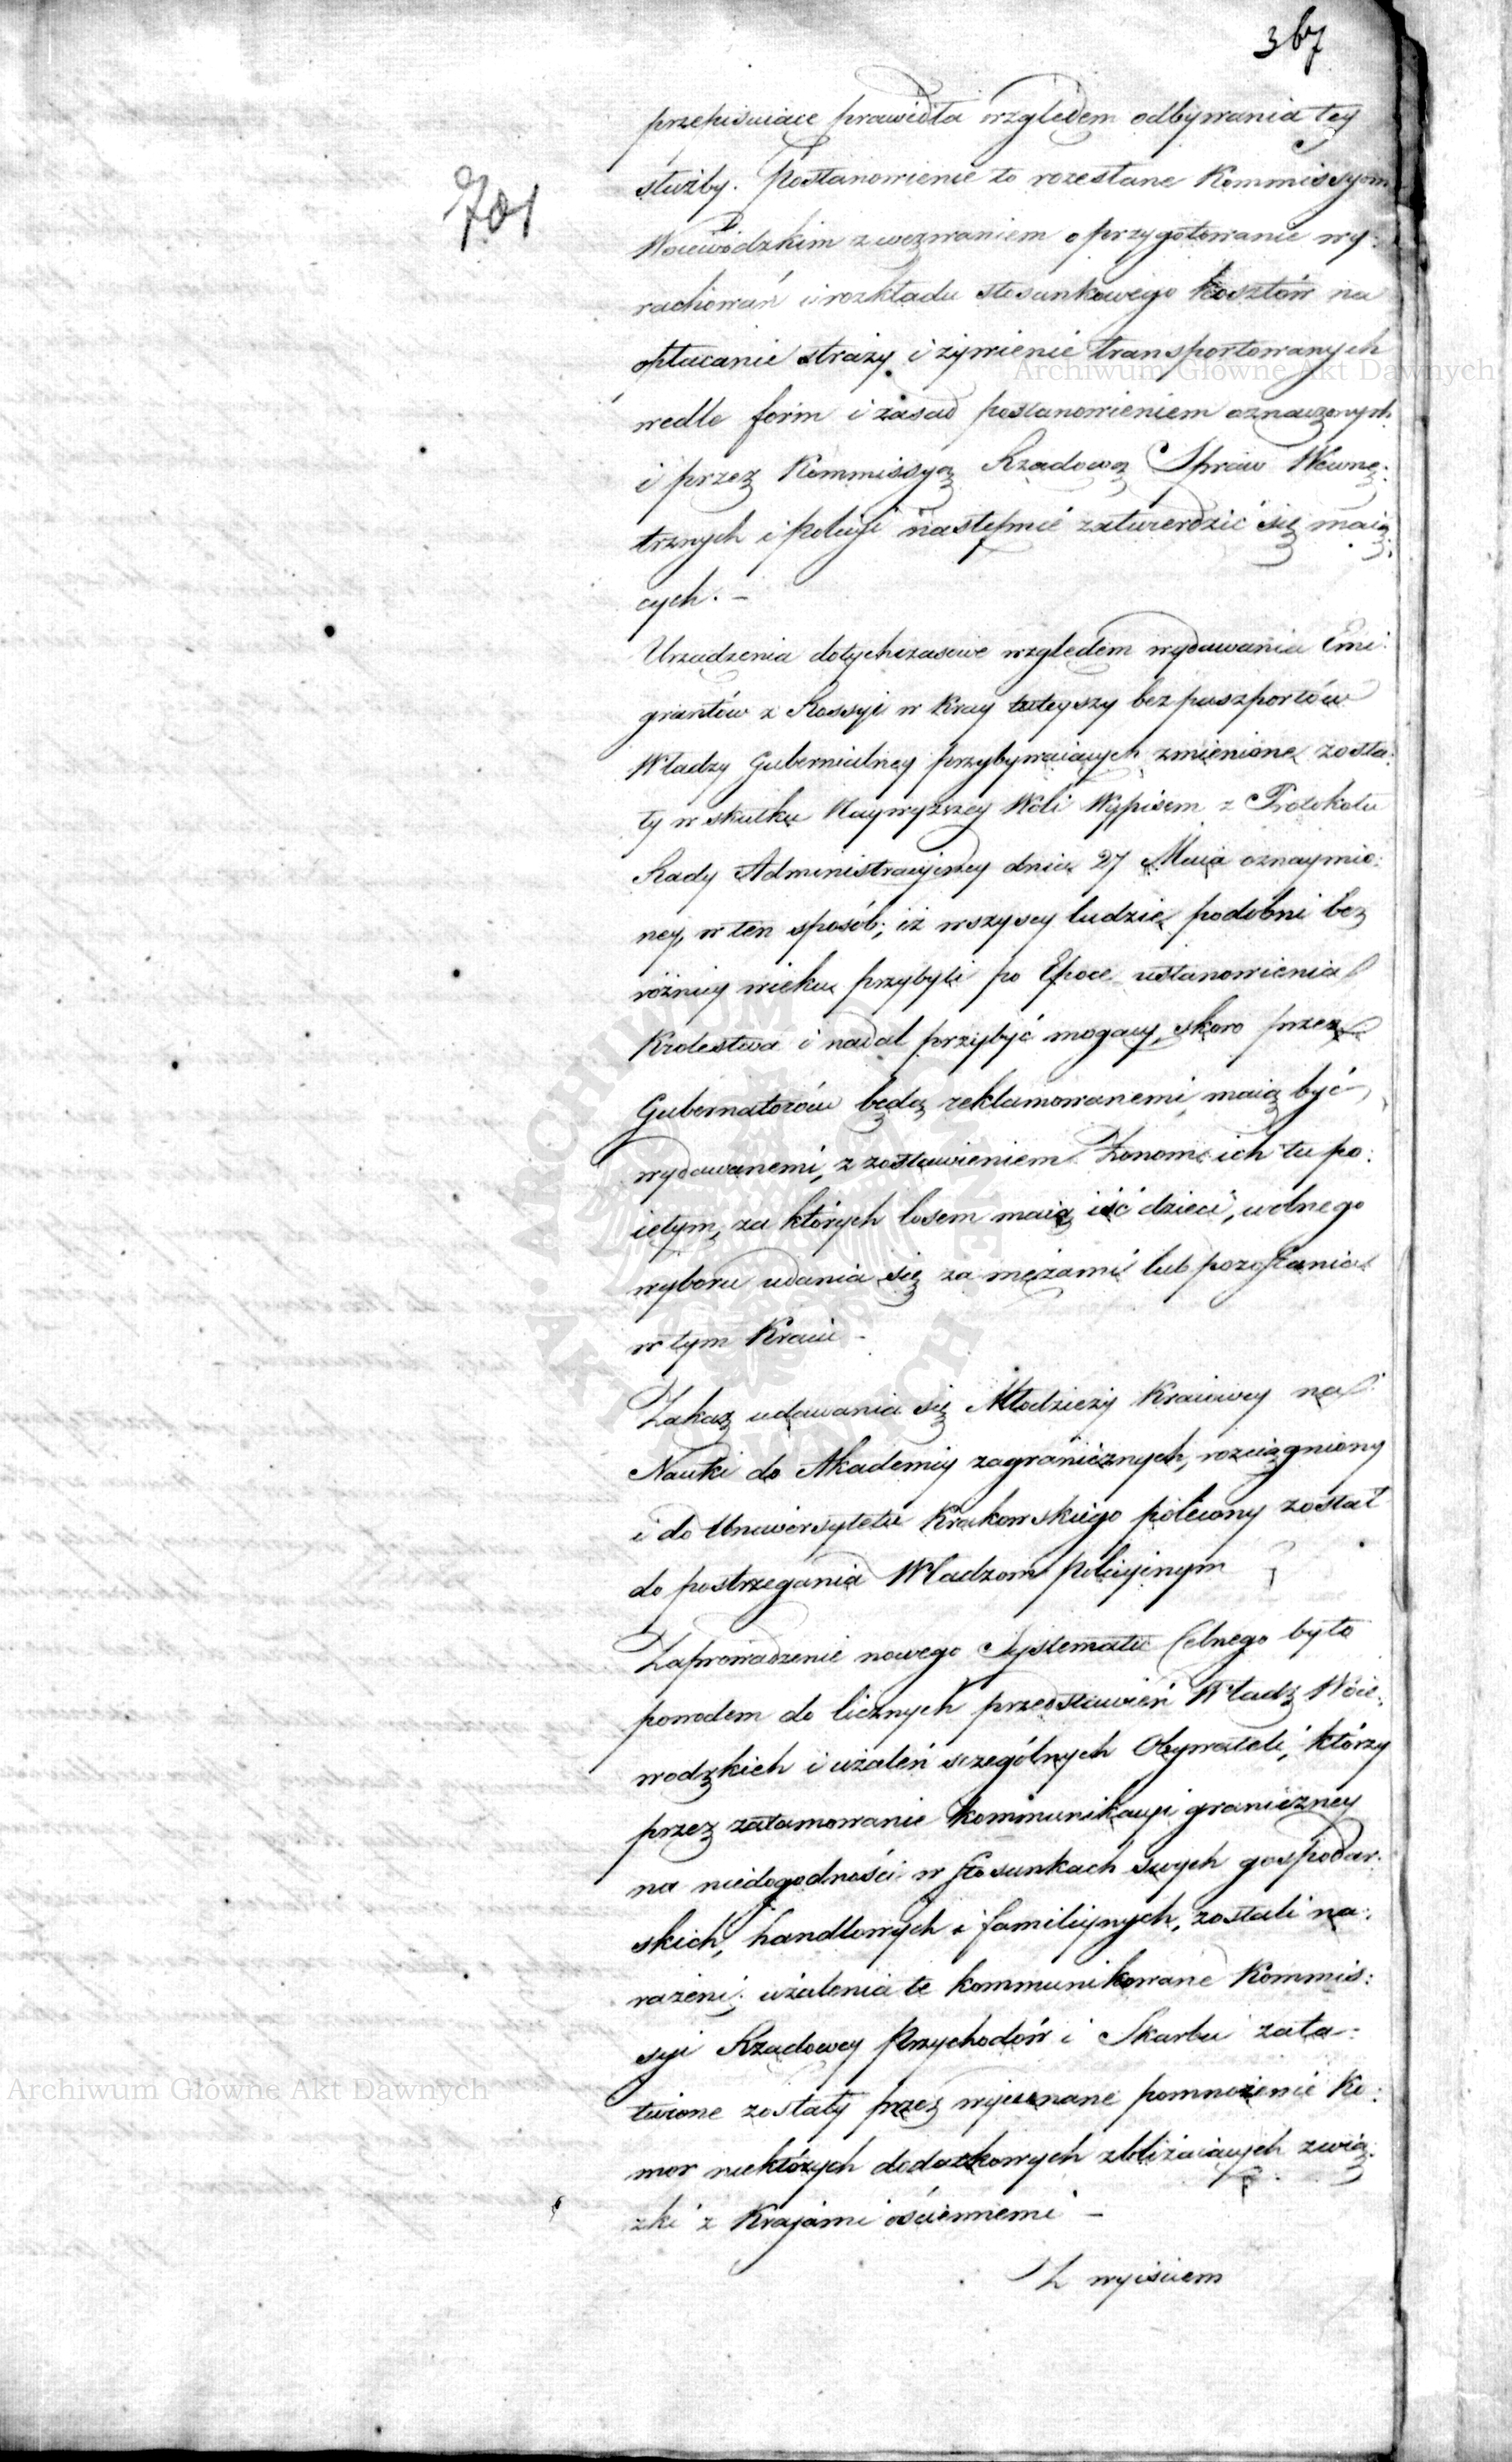 367
701
przepisuiące prawidła względem odbywania tey
służby. Postanowienie to rozesłane Kommissyom
Woiewódzkim z wezwaniem o przygotowanie wy:
rachowań i rozkładu stosunkowego kosztów na
opłacanie straży i żywienie transportowanych
wedle form i zasad postanowieniem oznaczonych
i przez Kommissyą Rządową Spraw Wewnę:
trznych i Policyi następnie zatwierdzić się maią:
cych. –
Urządzenia dotychczasowe względem wydawania Emi:
grantów z Rossyi w Kray tuteyszy bez paszportów
Władzy Gubernialney przybywaiących zmienione zosta:
ły w skutku Naywyższey Woli Wypisem z Protokołu
Rady Administracyjney dnia 27 Maia oznaymio:
ney, w ten sposób; iż wszyscy ludzie podobni bez
różnicy wieku przybyli po Epoce ustanowienia
Krolestwa i nadal przybyć mogący, skoro przez
Gubernatorów będą reklamowanemi, maią być
wydawanemi, z zostawieniem Żonom ich tu po:
iętym, za których losem maią iść dzieci, wolnego
wyboru udania się za mężami lub pozostania
w tym Kraiu –
Zakaz udawania się Młodzieży Kraiowey na
Nauki do Akademiy zagranicznych, rozciągniony
i do Uniwersytetu Krakowskiego polecony został
do postrzegania Władzom Policyinym
Zaprowadzenie nowego Systematu Celnego było
powodem do licznych przedstawień Władz Woie:
wodzkich i użaleń szczególnych Obywateli, którzy
przez zatamowanie kommunikacyi graniczney
na niedogodności w stosunkach swych gospodar:
skich, handlowych i familiynych, zostali na:
rażeni; użalenia te kommunikowane Kommis:
syi Rządowey Przychodów i Skarbu zała:
twione zostały przez wyjednane pomnożenie Ko:
mor niektórych dodatkowych zbliżaiących zwią:
zki z Krajami ościennemi –
Z wyiściem
Archiwum Główne Akt Dawnych
Archiwum Główne Akt Dawnych
ARCHIWUM GŁÓWNE AKT DAWNYCH